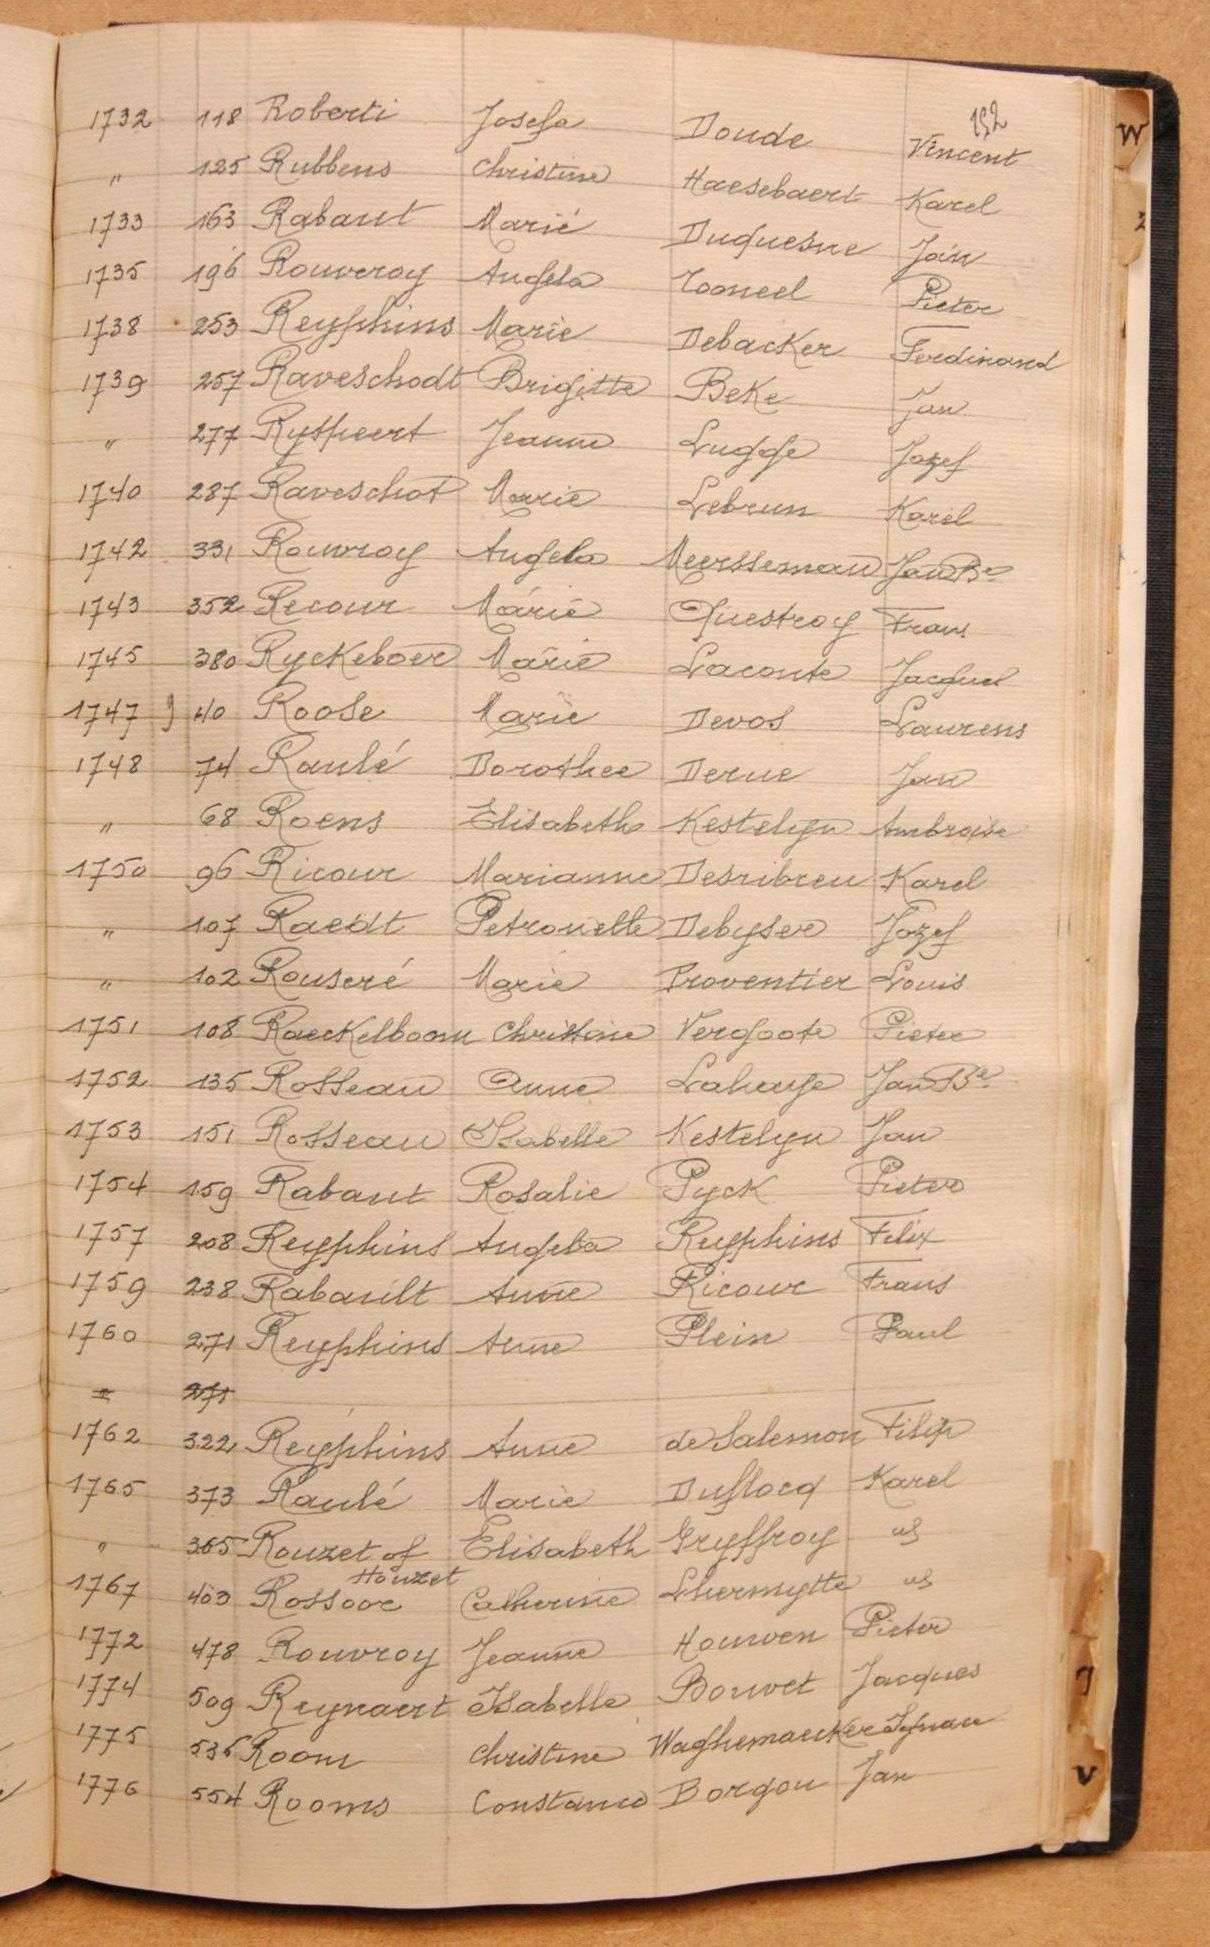 152
1732 118 Roberti Josefa Doude Vincent
" 125 Rubbens Christine Haesebaert Karel
1733 163 Rabaut Marie Duquesne Jan
1735 196 Rouveroy Angela Tooneel Pieter
1738 253 Reyphins Marie Debacker Ferdinand
1739 257 Raveschodt Brigitte Beke Jan
" 277 Ryspeert Jeanne Lugge Jozef
1740 287 Raveschot Marie Lebrun Karel
1742 331 Rouvroy Angela Meersseman Jan Bte
1743 352 Recour Marie Questroy Frans
1745 380 Ryckeboer Marie Laconte Jacques
1747 40 Roose Marie Devos Laurens
1748 74 Raulé Dorothee Derue Jan
" 68 Roens Elisabeth Kestelyn Ambroise
1750 96 Ricour Marianne Desribreu Karel
" 107 Raedt Petronelle Debyser Jozef
" 102 Rouseré Marie Proventier Louis
1751 108 Raeckelboom Christine Vergoote Pieter
1752 135 Rosseau Anne Lahaye Jan Bte
1753 151 Rosseau Isabelle Kestelyn Jan
1754 159 Rabaut Rosalie Pyck Pieter
1757 208 Reyphins Angela Reyphins Felix
1759 238 Rabault Anne Ricour Frans
1760 271 Reyphins Anne Plein Paul
" 271
1762 322 Reyphins Anne de Salemon Filip
1765 373 Raulé Marie Duflocq Karel
" 365 Rouzet of Elisabeth Gryffroy
Houzet
1767 403 Rossoor Catherine Lhermytte
1772 478 Rouvroy Jeanne Houwen Pieter
1774 509 Reynaert Isabelle Bouvet Jacques
1775 535 Room Christine Waghemaecker Ignace
1776 554 Rooms Constance Borgou Jan
W
V